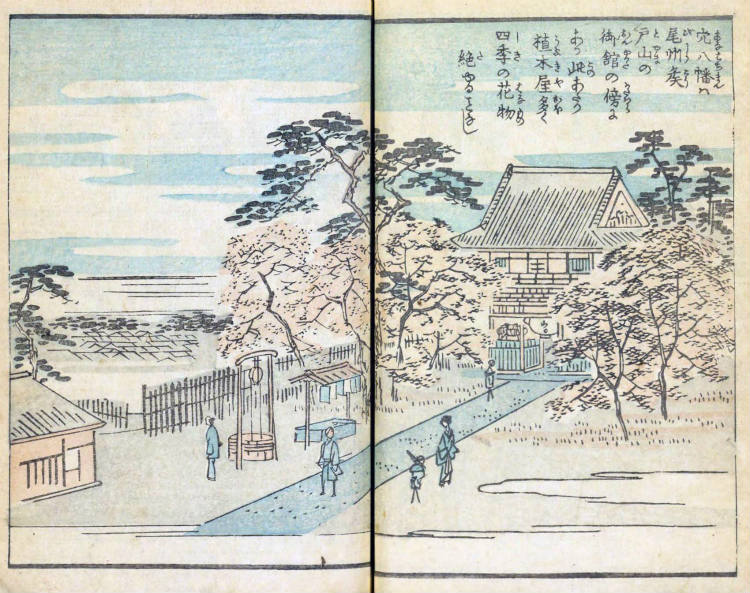 穴八幡ハ
尾州矦
戸山の
御館の傍に
あり此あたり
植木屋多く
四季の花物
絶ることなし